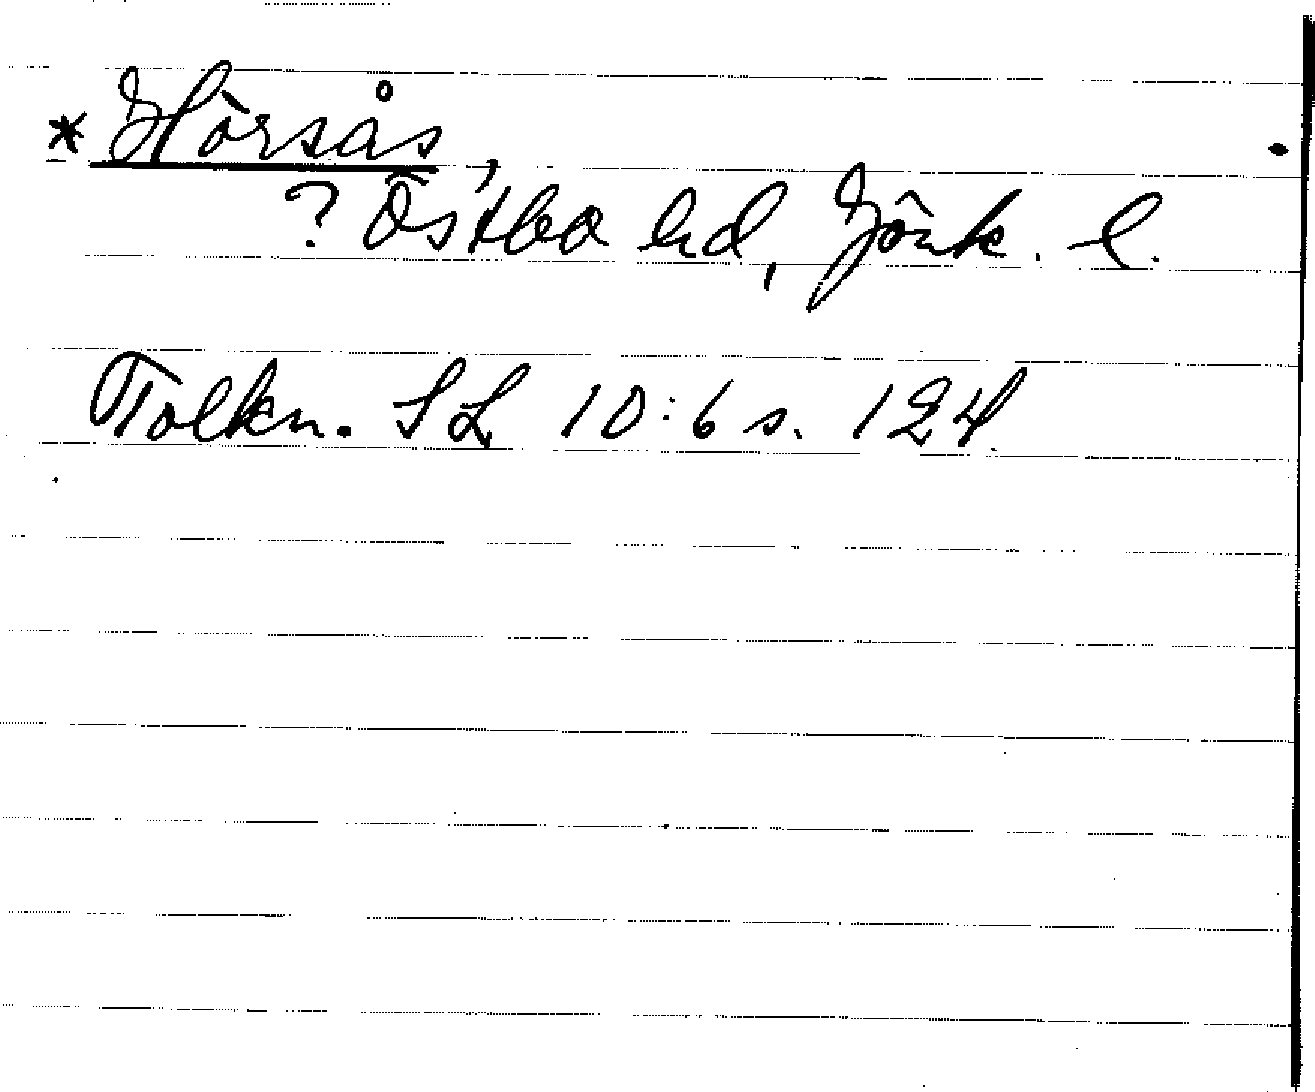 * Hörsås,
? Östbo hd, Jönk. l.
Tolkn. SL 10:6 s. 124.